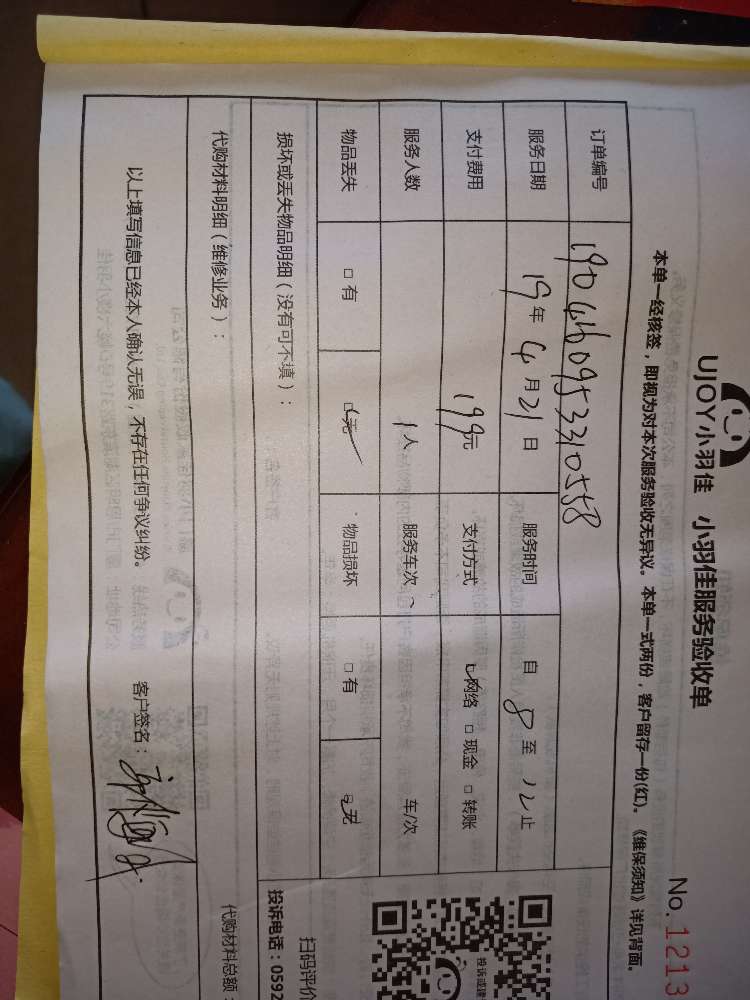 UJOY小羽佳 小羽佳服务验收单
No. 1213
本单一经核签，即视为对本次服务验收无异议。本单一式两份，客户留存一份(红)。《维保须知》详见背面。
订单编号 1904160953310558
服务日期 19年4月21日 服务时间 自 8 至 12 止
支付费用 199元 支付方式 ☑网络 □现金 □转账
服务人数 1人 服务车次 车/次
物品丢失 □有 ☑无 物品损坏 □有 ☑无
损坏或丢失物品明细（没有可不填）：
代购材料明细（维修业务）：
代购材料总额：
以上填写信息已经本人确认无误，不存在任何争议纠纷。 客户签名：
扫码评价
投诉电话：0592